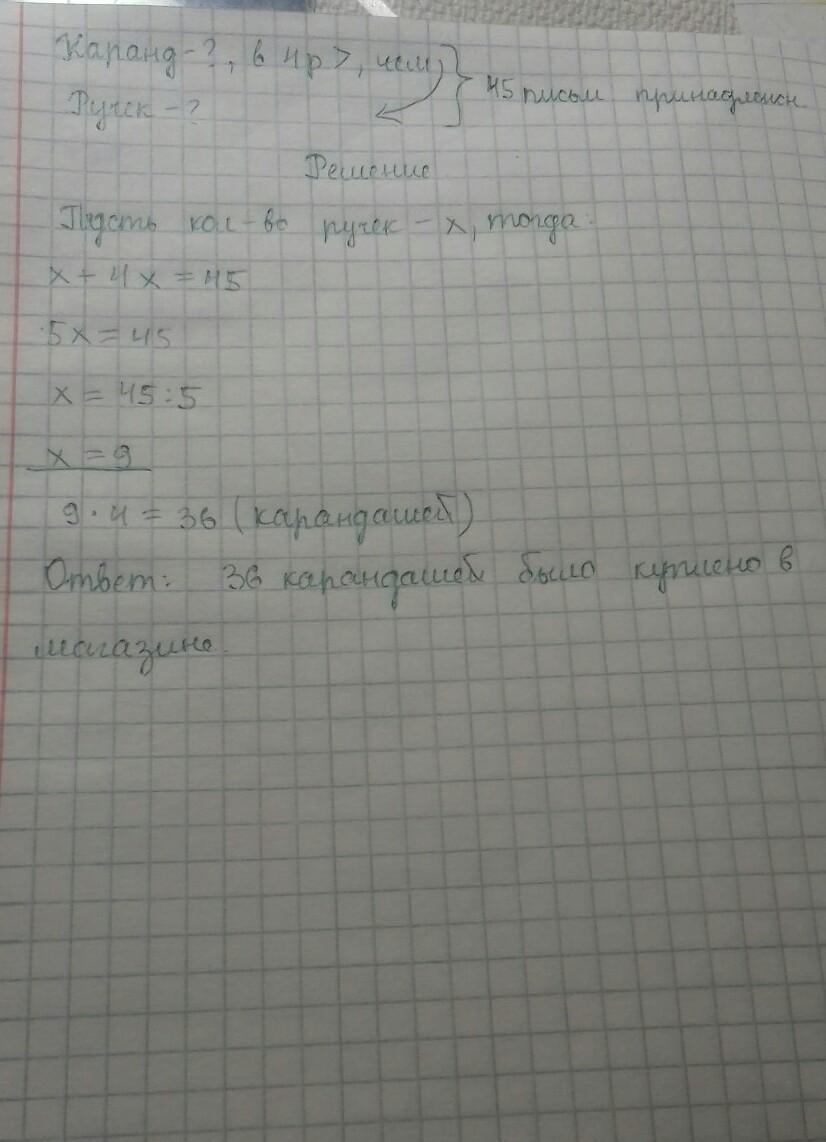 Каранд-?, в 4р >, чем
Ручек - ?
45 письм принадлежн
Решение
Пусть кол-во ручек - х, тогда:
х + 4х = 45
5х = 45
х = 45 : 5
х = 9
9 · 4 = 36 (карандашей)
Ответ: 36 карандашей было куплено в
магазине.